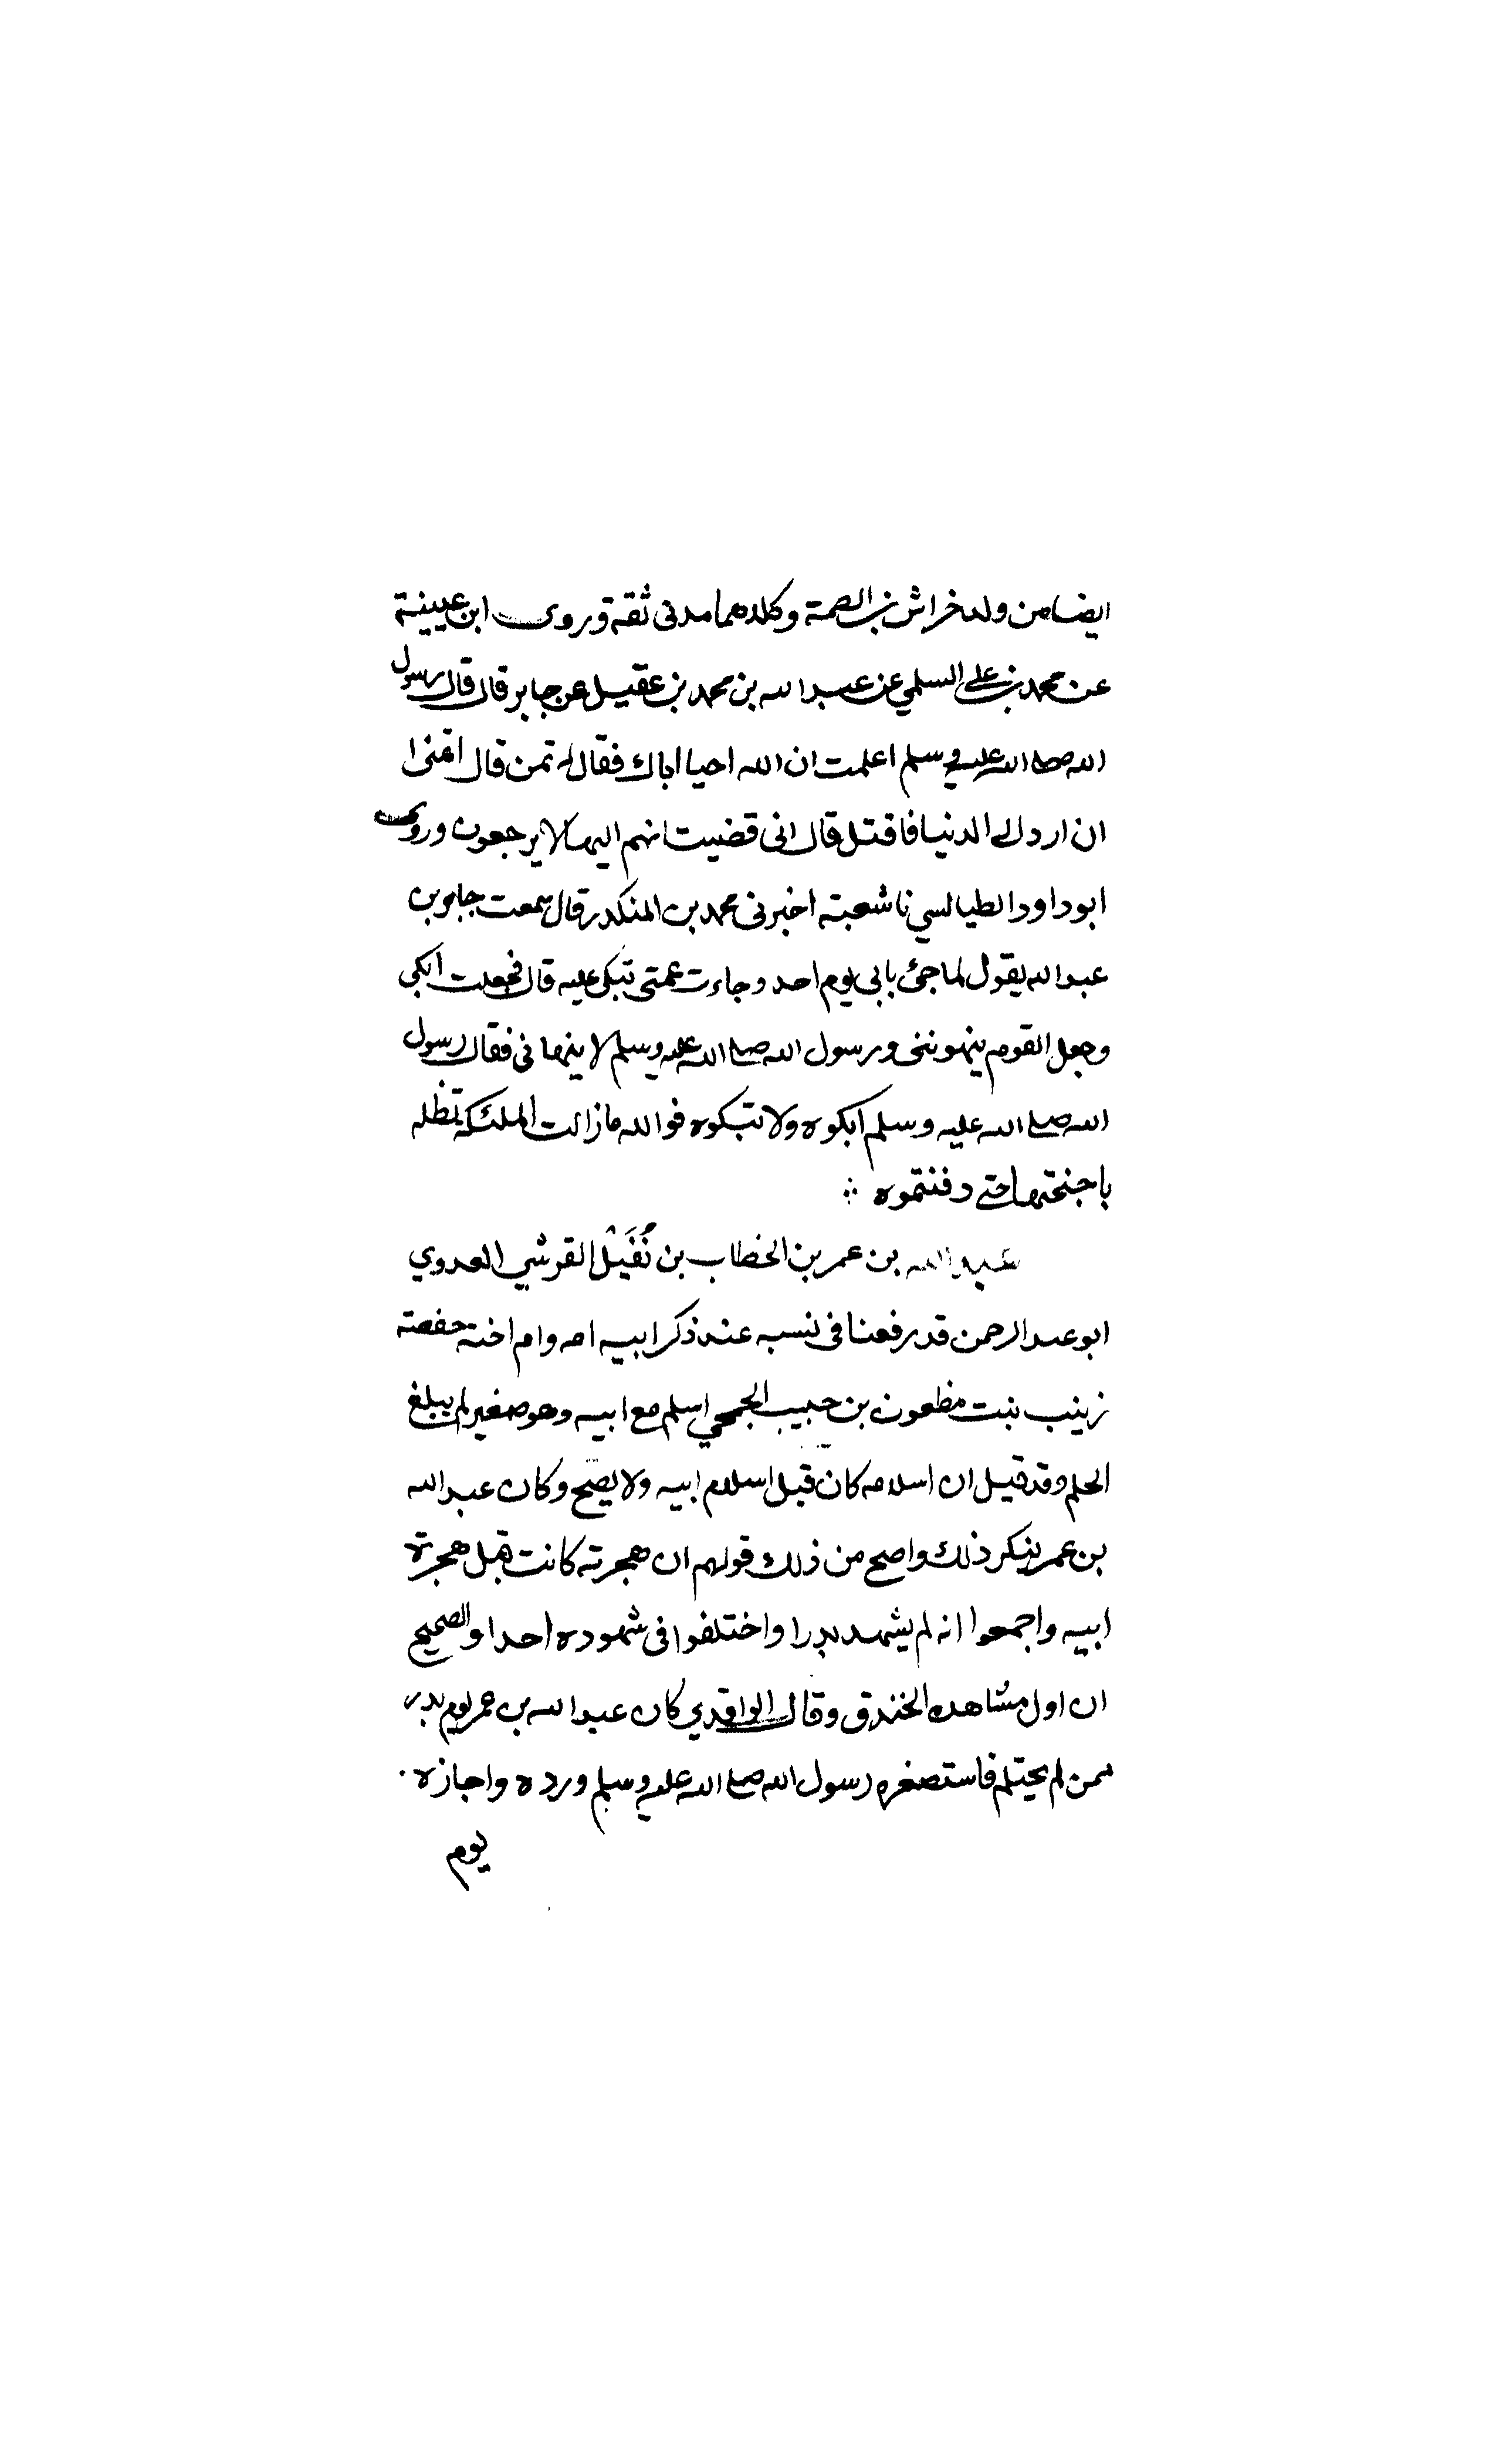 ايضا من ولد خراش بن الصمة وكلاهما مدنى ثقة وروى ابن عيينة
عن محمد بن على السلمي عن عبد الله بن محمد بن عقيل عن جابر قال قال رسول
الله صلى الله عليه وسلم اعلمت ان الله احيا اباك فقال له تمن قال اتمنى ا
ان ارد الى الدنيا فاقتل قال انى قضيت انهم اليها لا يرجعون وروى
ابو داود الطيالسي نا شعبة اخبرنى محمد بن المنكدر قال سمعت جابر بن
عبد الله يقول لما جئ بابى يوم احد وجاءت عمتى تبكى عليه قال فجعلت ابكى
وجعل القوم ينهوننى ورسول الله صلى الله عليه وسلم لا ينهانى فقال رسول
الله صلى الله عليه وسلم ابكوه ولا تبكوه فوالله ما زالت الملئكة تظله
باجنحتها حتى دفنتموه ∴
عبد الله بن عمر بن الخطاب بن نُفَيْل القرشي العدوي
ابو عبد الرحمن قد رفعنا فى نسبه عند ذكر ابيه امه وام اخته حفصة
زينب بنت مظعون بن حبيب الجمحي اسلم مع ابيه وهو صغير لم يبلغ
الحلم وقد قيل ان اسلامه كان قبل اسلام ابيه ولا يصح وكان عبد الله
بن عمر ينكر ذلك واصح من ذلك قولهم ان هجرته كانت قبل هجرة
ابيه واجمعوا انه لم يشهد بدرا واختلفوا فى شهوده احدا والصحيح
ان اول مشاهده الخندق وقال الواقدي كان عبد الله بن عمر يوم بدر
ممن لم يحتلم فاستصغره رسول الله صلى الله عليه وسلم ورده واجازه.
يوم